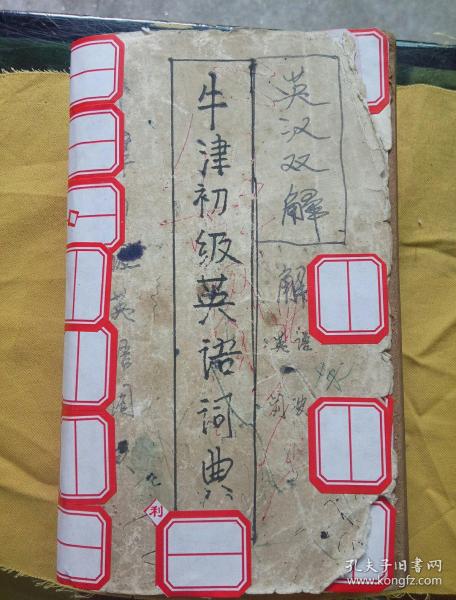 英汉双解
牛津初级英语词典
解
利
孔夫子旧书网
www.kongfz.com